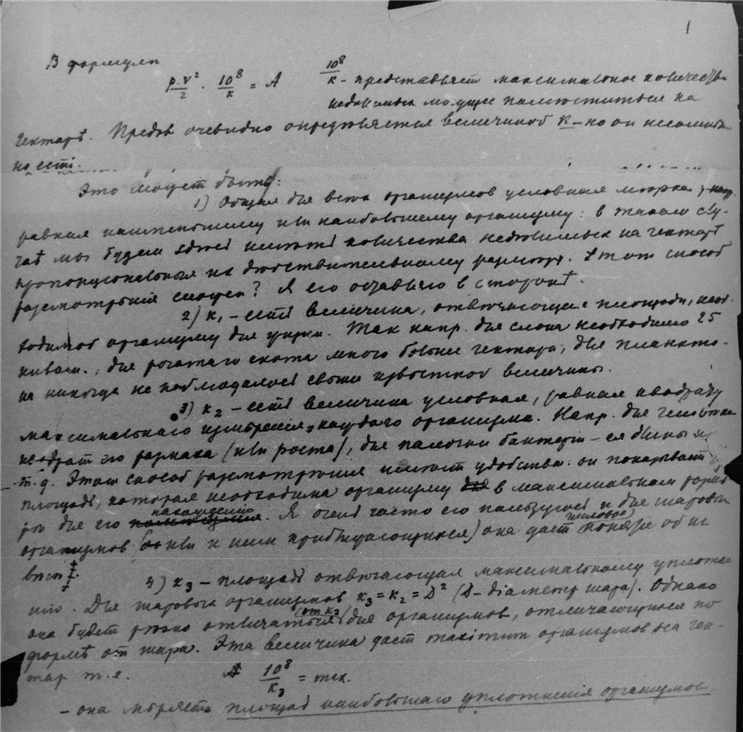 1
В формуле
p.v²/2 · 10⁸/k = A 10⁸/k – представляет максимальное количество
неделимых могущее поместиться на
гектаре. Предел очевидно определяется величиной k – но он несомнен-
но есть.
Это может быть:
1) Общая для всех организмов условная мерка,
равная наименьшему или наибольшему организму: в таком слу-
чае мы будем иметь количества неделимых на гектаре
пропорциональныя их действительному размеру. Этот способ
разсмотрения ? Я его оставлю в стороне.
2) k₁ – есть величина, отвечающая площади, необ-
ходимой организму для жизни. Так напр. для слона необходимо 25
, для рогатаго скота много больше гектара, для планкто-
на никогда не наблюдалось свыше известной величины.
3) k₂ – есть величина условная, равная квадрату
максимальнаго измерения каждаго организма. Напр. для человека
квадрат его размаха (или роста), для палочки бактерии – ея длины и
т. д. Этот способ разсмотрения имеет удобства: он показывает
площадь, которая необходима организму в максимальном разме-
ре для его нахождения. Я очень часто его пользуюсь и для шаровых
организмов (или к ним приближающихся) она дает понятие об их
4) k₃ – площадь отвечающая максимальному уплотне-
нию. Для шаровых организмов k₃ = k₂ = D² (D – діаметр шара). Однако
она будет резко отличаться (от k₂) для организмов, отличающихся по
форме от шара. Эта величина дает maximum организмов на гек-
тар т.е. 10⁸/k₃ = max.
– она меряет площадь наибольшаго уплотнения организмов.